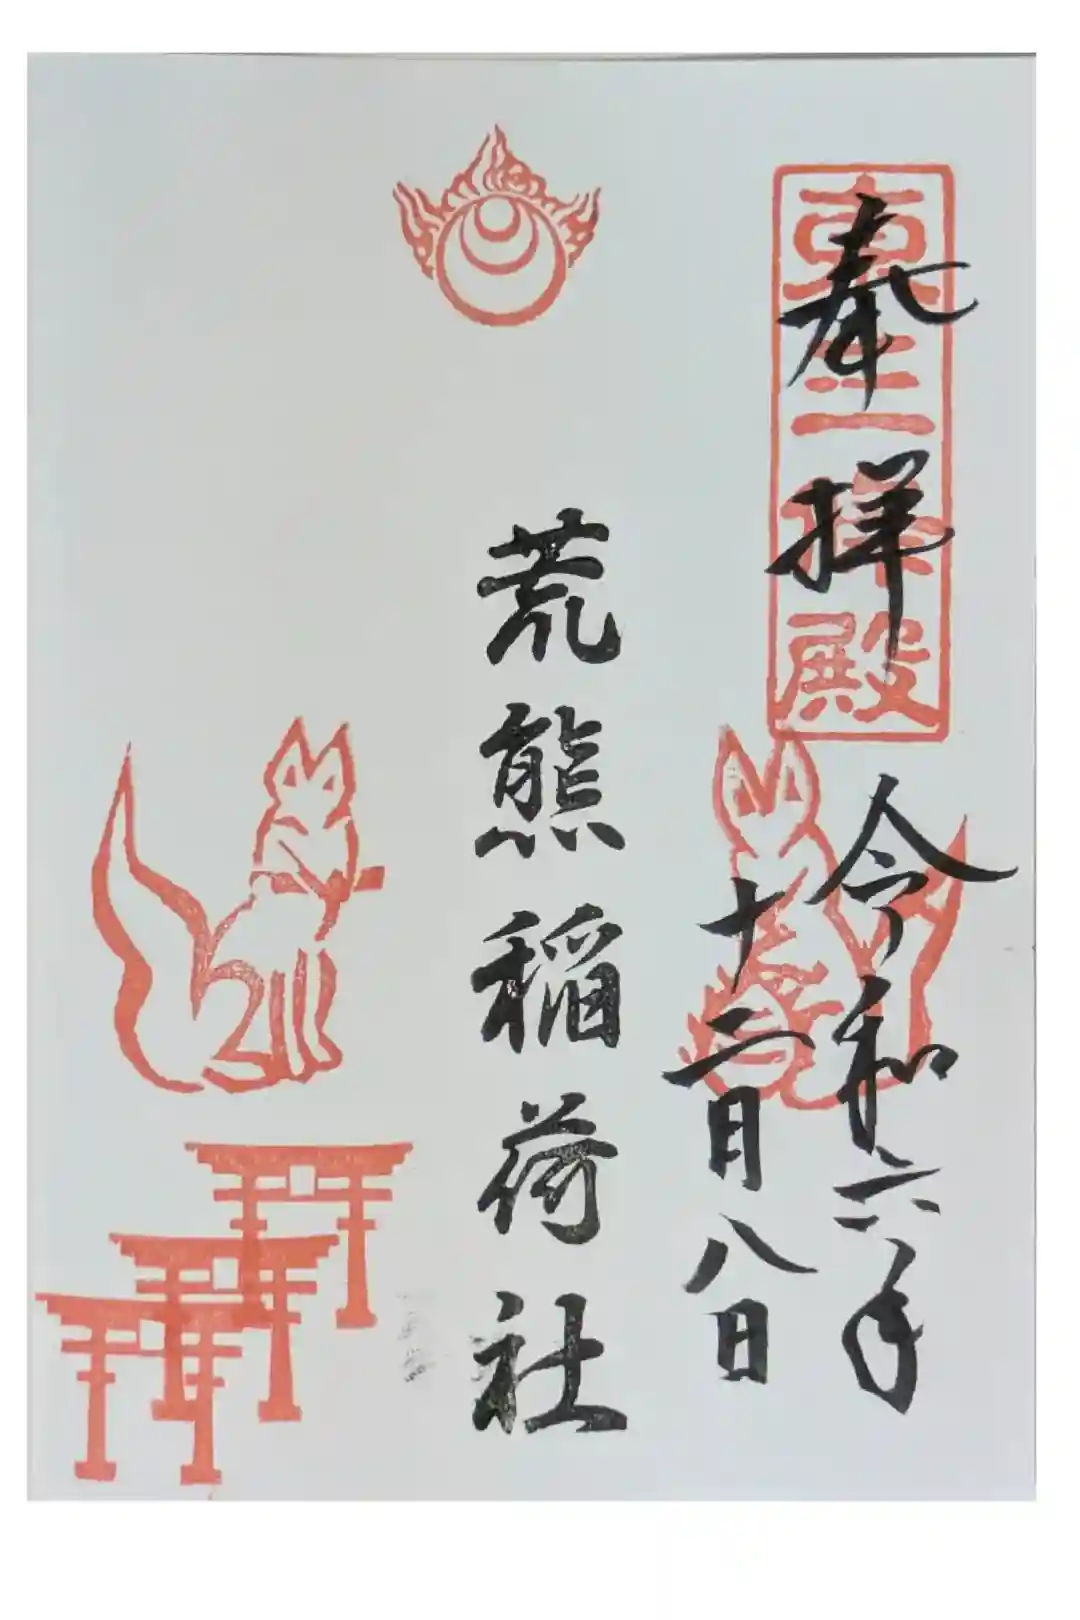 奉拝
東三拝殿
令和六年
十二月八日
荒熊稲荷社